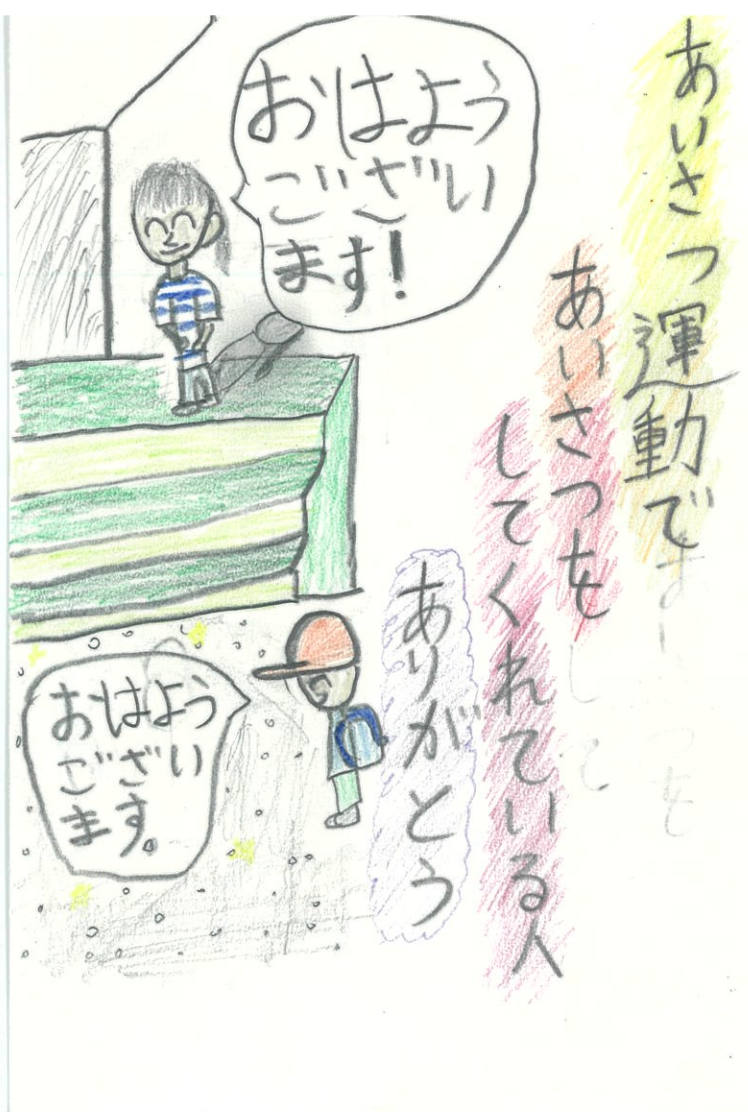 あいさつ運動で
あいさつを
してくれている人
ありがとう
おはよう
ござい
ます!
おはよう
ござい
ます。